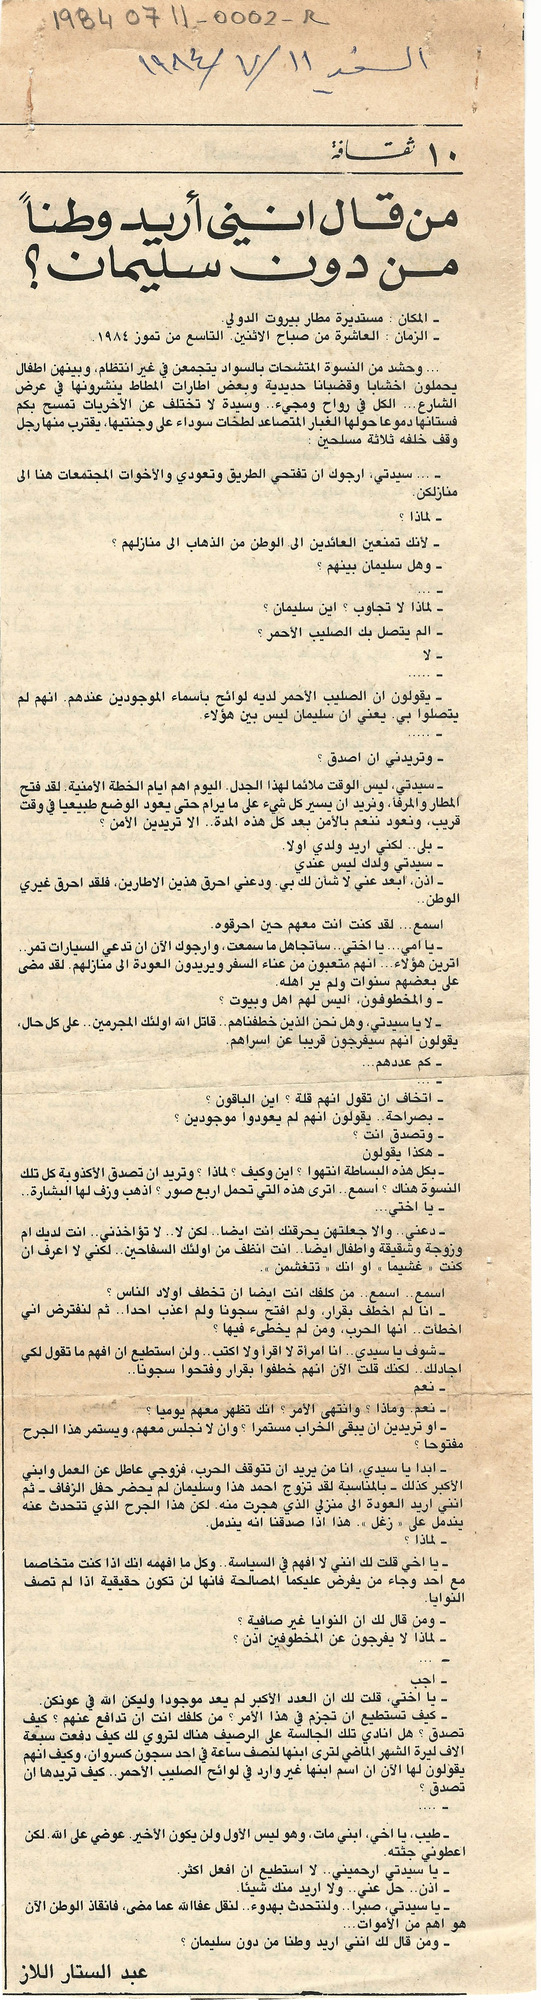 1984 07 11-0002-R
السفير ١١/ ٧/ ١٩٨٤
١٠ ثقافة
من قال انني أريد وطناً
من دون سليمان؟
ـ المكان : مستديرة مطار بيروت الدولي.
ـ الزمان : العاشرة من صباح الاثنين. التاسع من تموز ١٩٨٤.
... وحشد من النسوة المتشحات بالسواد يتجمعن في غير انتظام، وبينهن اطفال
يحملون اخشابا وقضبانا حديدية وبعض اطارات المطاط ينشرونها في عرض
الشارع... الكل في رواح ومجيء.. وسيدة لا تختلف عن الأخريات تمسح بكم
فستانها دموعا حولها الغبار المتصاعد لطخات سوداء على وجنتيها، يقترب منها رجل
وقف خلفه ثلاثة مسلحين :
ـ ... سيدتي، ارجوك ان تفتحي الطريق وتعودي والأخوات المجتمعات هنا الى
منازلكن.
ـ لماذا ؟
ـ لأنك تمنعين العائدين الى الوطن من الذهاب الى منازلهم ؟
ـ وهل سليمان بينهم ؟
ـ ...
ـ لماذا لا تجاوب ؟ اين سليمان ؟
ـ الم يتصل بك الصليب الأحمر ؟
ـ لا
ـ .....
ـ يقولون ان الصليب الأحمر لديه لوائح بأسماء الموجودين عندهم. انهم لم
يتصلوا بي. يعني ان سليمان ليس بين هؤلاء.
ـ .....
ـ وتريدني ان اصدق ؟
ـ سيدتي، ليس الوقت ملائما لهذا الجدل. اليوم اهم ايام الخطة الأمنية. لقد فتح
المطار والمرفأ، ونريد ان يسير كل شيء على ما يرام حتى يعود الوضع طبيعيا في وقت
قريب، ونعود ننعم بالأمن بعد كل هذه المدة.. الا تريدين الأمن ؟
ـ بلى.. لكني اريد ولدي اولا.
ـ سيدتي ولدك ليس عندي
ـ اذن، ابعد عني لا شأن لك بي. ودعني احرق هذين الاطارين، فلقد احرق غيري
الوطن..
اسمع... لقد كنت انت معهم حين احرقوه.
ـ يا امي... يا اختي.. سأتجاهل ما سمعت، وارجوك الآن ان تدعي السيارات تمر..
اترين هؤلاء... انهم متعبون من عناء السفر ويريدون العودة الى منازلهم. لقد مضى
على بعضهم سنوات ولم ير اهله.
ـ والمخطوفون، اليس لهم اهل وبيوت ؟
ـ لا يا سيدتي، وهل نحن الذين خطفناهم.. قاتل الله اولئك المجرمين.. على كل حال،
يقولون انهم سيفرجون قريبا عن اسراهم.
ـ كم عددهم...
ـ ...
ـ اتخاف ان تقول انهم قلة ؟ اين الباقون ؟
ـ بصراحة.. يقولون انهم لم يعودوا موجودين ؟
ـ وتصدق انت ؟
ـ هكذا يقولون
ـ بكل هذه البساطة انتهوا ؟ اين وكيف ؟ لماذا ؟ وتريد ان تصدق الأكذوبة كل تلك
النسوة هناك ؟ اسمع.. اترى هذه التي تحمل اربع صور ؟ اذهب وزف لها البشارة..
ـ يا اختي...
ـ دعني.. والا جعلتهن يحرقنك انت ايضا.. لكن لا.. لا تؤاخذني.. انت لديك ام
وزوجة وشقيقة واطفال ايضا.. انت انظف من اولئك السفاحين.. لكني لا اعرف ان
كنت « غشيما » او انك « تتغشمن ».
اسمع.. اسمع.. من كلفك انت ايضا ان تخطف اولاد الناس ؟
ـ انا لم اخطف بقرار، ولم افتح سجونا ولم اعذب احدا.. ثم لنفترض اني
اخطأت.. انها الحرب، ومن لم يخطىء فيها ؟
ـ شوف يا سيدي.. انا امرأة لا اقرأ ولا اكتب.. ولن استطيع ان افهم ما تقول لكي
اجادلك.. لكنك قلت الآن انهم خطفوا بقرار وفتحوا سجونا..
ـ نعم
ـ نعم. وماذا ؟ وانتهى الأمر ؟ انك تظهر معهم يوميا ؟
ـ او تريدين ان يبقى الخراب مستمرا ؟ وان لا نجلس معهم، ويستمر هذا الجرح
مفتوحا ؟
ـ ابدا يا سيدي، انا من يريد ان تتوقف الحرب، فزوجي عاطل عن العمل وابني
الأكبر كذلك ـ بالمناسبة لقد تزوج احمد هذا وسليمان لم يحضر حفل الزفاف ـ ثم
انني اريد العودة الى منزلي الذي هجرت منه. لكن هذا الجرح الذي تتحدث عنه
يندمل على « زغل ». هذا اذا صدقنا انه يندمل.
ـ لماذا ؟
ـ يا اخي قلت لك انني لا افهم في السياسة.. وكل ما افهمه انك اذا كنت متخاصما
مع احد وجاء من يفرض عليكما المصالحة فانها لن تكون حقيقية اذا لم تصف
النوايا.
ـ ومن قال لك ان النوايا غير صافية ؟
ـ لماذا لا يفرجون عن المخطوفين اذن ؟
ـ ...
ـ اجب
ـ يا اختي، قلت لك ان العدد الأكبر لم يعد موجودا وليكن الله في عونكن.
ـ كيف تستطيع ان تجزم في هذا الأمر ؟ من كلفك انت ان تدافع عنهم ؟ كيف
تصدق ؟ هل انادي تلك الجالسة على الرصيف هناك لتروي لك كيف دفعت سبعة
الاف ليرة الشهر الماضي لترى ابنها لنصف ساعة في احد سجون كسروان، وكيف انهم
يقولون لها الآن ان اسم ابنها غير وارد في لوائح الصليب الأحمر.. كيف تريدها ان
تصدق ؟
ـ ....
ـ طيب، يا اخي، ابني مات، وهو ليس الأول ولن يكون الأخير. عوضي على الله. لكن
اعطوني جثته.
ـ يا سيدتي ارحميني.. لا استطيع ان افعل اكثر.
ـ اذن.. حلّ عني.. ولا اريد منك شيئا.
ـ يا سيدتي، صبرا.. ولنتحدث بهدوء.. لنقل عفا الله عما مضى، فانقاذ الوطن الآن
هو اهم من الأموات...
ـ ومن قال لك انني اريد وطنا من دون سليمان ؟
عبد الستار اللاز